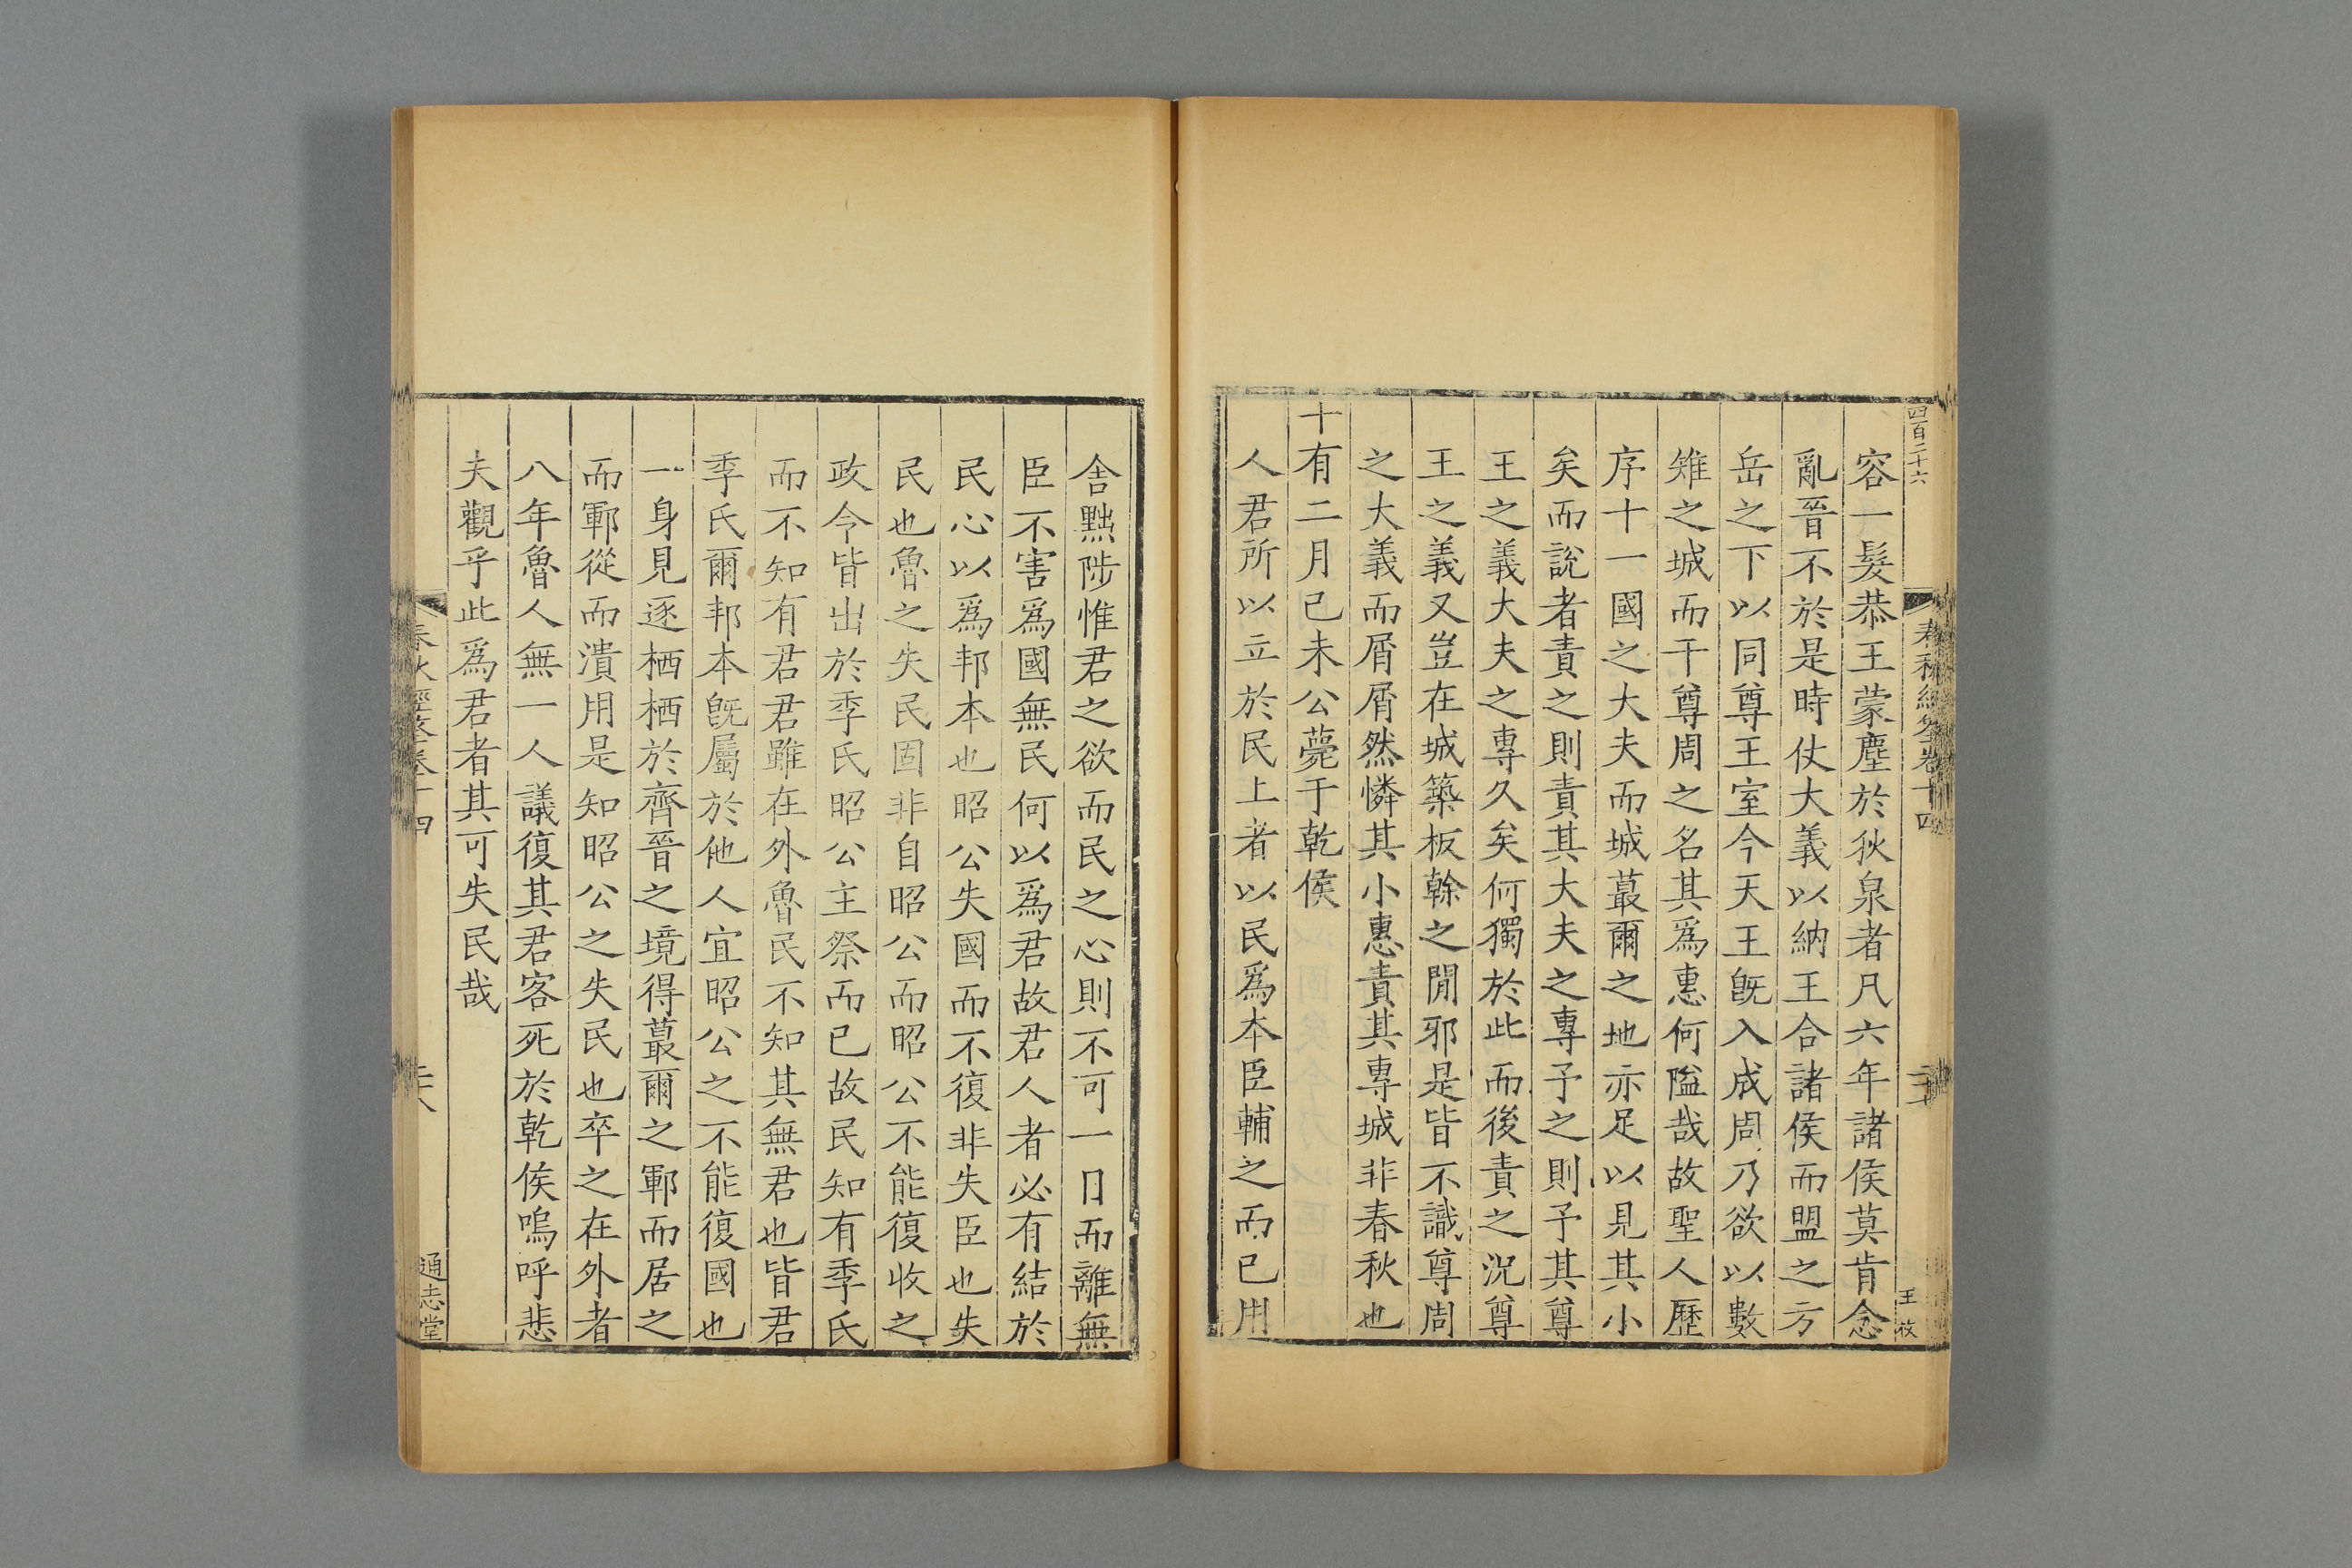 四百二十六
春秋經筌卷十四
王筱
容一髮恭王蒙塵於狄泉者凡六年諸侯莫肯念
亂晉不於是時仗大義以納王合諸侯而盟之方
岳之下以同尊王室今天王旣入成周乃欲以數
雉之城而干尊周之名其爲惠何隘哉故聖人歷
序十一國之大夫而城蕞爾之地亦足以見其小
矣而說者責之則責其大夫之專予之則予其尊
王之義大夫之專久矣何獨於此而後責之況尊
王之義又豈在城築板榦之閒邪是皆不識尊周
之大義而屑屑然憐其小惠責其專城非春秋也
十有二月己未公薨于乾侯
人君所以立於民上者以民爲本臣輔之而已用
舍黜陟惟君之欲而民之心則不可一日而離無
臣不害爲國無民何以爲君故君人者必有結於
民心以爲邦本也昭公失國而不復非失臣也失
民也魯之失民固非自昭公而昭公不能復收之
政令皆出於季氏昭公主祭而已故民知有季氏
而不知有君君雖在外魯民不知其無君也皆君
季氏爾邦本旣屬於他人宜昭公之不能復國也
一身見逐栖栖於齊晉之境得蕞爾之鄆而居之
而鄆從而潰用是知昭公之失民也卒之在外者
八年魯人無一人議復其君客死於乾侯嗚呼悲
夫觀乎此爲君者其可失民哉
春秋經筌卷十四
通志堂